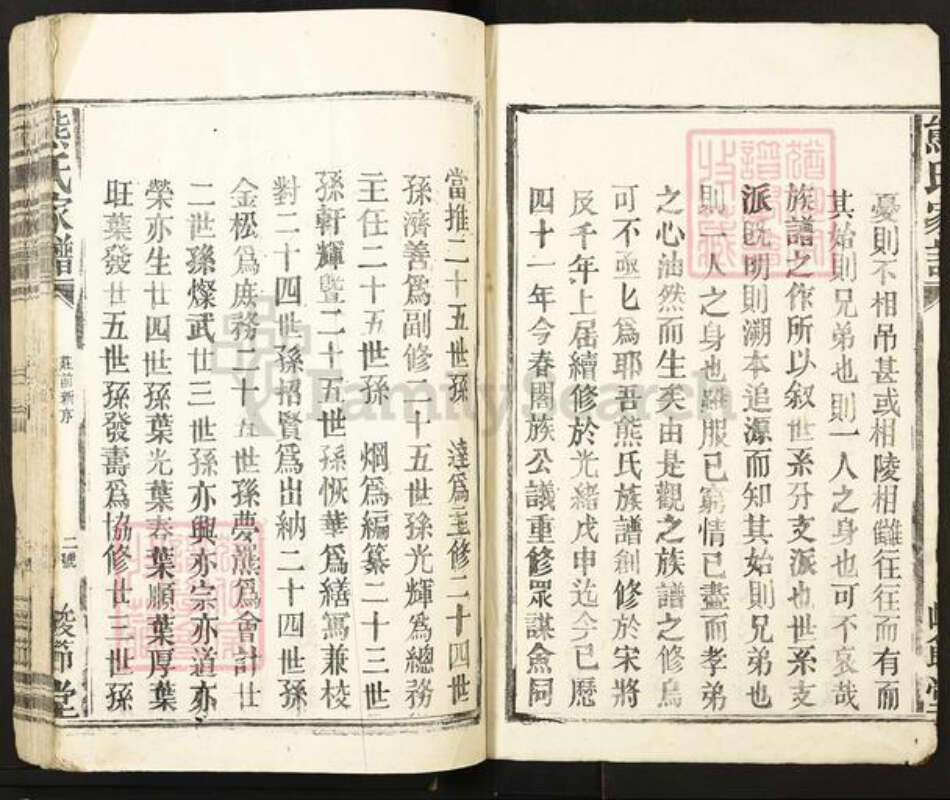 憂則不相吊甚或相陵相讎往往而有而
其始則兄弟也則一人之身也可不哀哉
族譜之作所以叙世系分支派也世系支
派既明則溯本追源而知其始則兄弟也
則一人之身也雖服已窮情已盡而孝弟
之心油然而生矣由是觀之族譜之修烏
可不亟亟為耶吾熊氏族譜創修於宋將
及千年上屆續修於光緒戊申迄今已歷
四十一年今春闔族公議重修眾謀僉同
熊氏家譜
莊前新序
二號
節堂
當推二十五世孫 達為主修二十四世
孫濟善為副修二十五世孫光輝為總務
主任二十五世孫 烱為編纂二十三世
孫軒輝暨二十五世孫恢華為繕寫兼校
對二十四世孫招賢為出納二十四世孫
金松為庶務二十五世孫夢熊為會計廿
二世孫燦武廿三世孫亦興亦宗亦道亦
榮亦生廿四世孫葉光葉春葉順葉厚葉
旺葉發廿五世孫發壽為協修廿三世孫
FamilySearch